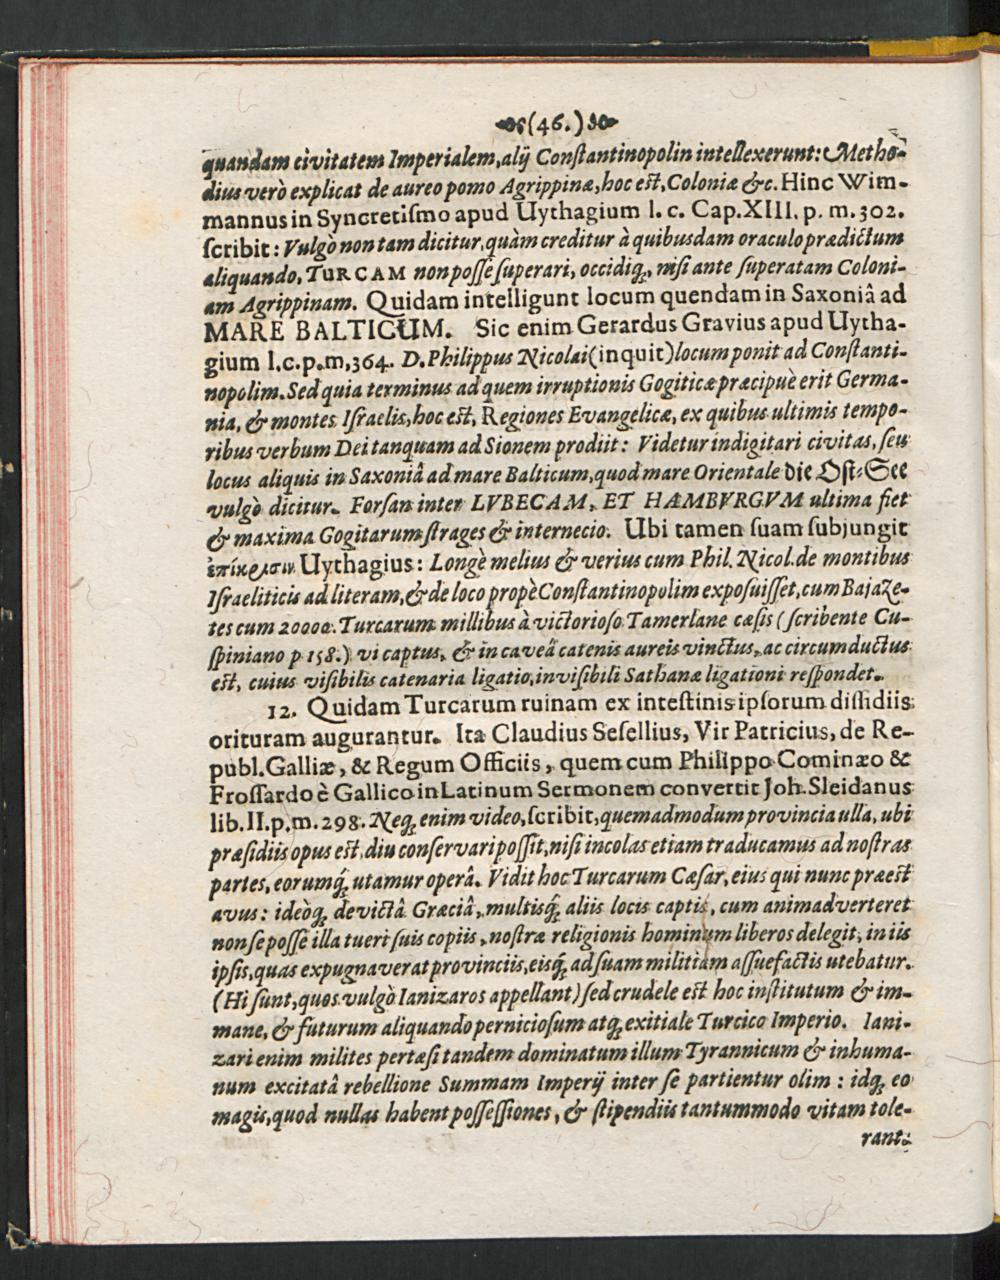 (46.)
quandam civitatem Imperialem, alij Conſtantinopolin intellexerunt: Metho-
dius verò explicat de aureo pomo Agrippinæ, hoc eſt, Coloniæ &c. Hinc Wim-
mannus in Syncretiſmo apud Uythagium l. c. Cap. XIII. p. m. 302.
ſcribit: Vulgò non tam dicitur, quàm creditur à quibusdam oraculo prædictum
aliquando, TURCAM non poſſe ſuperari, occidiq́;, niſi ante ſuperatam Coloni-
am Agrippinam. Quidam intelligunt locum quendam in Saxoniâ ad
MARE BALTICUM. Sic enim Gerardus Gravius apud Uytha-
gium l. c. p. m, 364. D. Philippus Nicolai (inquit) locum ponit ad Conſtanti-
nopolim. Sed quia terminus ad quem irruptionis Gogiticæ præcipuè erit Germa-
nia, & montes Iſraelis, hoc eſt, Regiones Evangelicæ, ex quibus ultimis tempo-
ribus verbum Dei tanquam ad Sionem prodiit: Videtur indigitari civitas, ſeu
locus aliquis in Saxoniâ ad mare Balticum, quod mare Orientale die Oſt-See
vulgò dicitur. Forſan inter LVBECAM, ET HAMBVRGVM ultima fiet
& maxima Gogitarum ſtrages & internecio. Ubi tamen ſuam ſubjungit
ἐπίκρισιν Uythagius: Longè melius & verius cum Phil. Nicol. de montibus
Iſraeliticis ad literam, & de loco propè Conſtantinopolim expoſuiſſet, cum Bajaze-
tes cum 20000. Turcarum millibus à victorioſo Tamerlane cæſis (ſcribente Cu-
ſpiniano p 158.) vi captus, & in caveâ catenis aureis vinctus, ac circumductus
eſt, cuius viſibilis catenaria ligatio, inviſibili Sathanæ ligationi reſpondet.
12. Quidam Turcarum ruinam ex inteſtinis ipſorum diſſidiis
orituram augurantur. Ita Claudius Seſellius, Vir Patricius, de Re-
publ. Galliæ, & Regum Officiis, quem cum Philippo Cominæo &
Froſſardo è Gallico in Latinum Sermonem convertit Joh. Sleidanus
lib. II. p. m. 298. Neq; enim video, ſcribit, quemadmodum provincia ulla, ubi
præſidiis opus eſt, diu conſervari poſſit, niſi incolas etiam traducamus ad noſtras
partes, eorumq́; utamur operâ. Vidit hoc Turcarum Cæſar, eius qui nunc præeſt
avus: ideòq; devictâ Græciâ, multisq́; aliis locis captis, cum animadverteret
non ſe poſſe illa tueri ſuis copiis, noſtræ religionis hominum liberos delegit, in iis
ipſis, quas expugnaverat provinciis, eisq́; ad ſuam militiam aſſuefactis utebatur.
(Hi ſunt, quos vulgò Ianizaros appellant) ſed crudele eſt hoc inſtitutum & im-
mane, & futurum aliquando pernicioſum atq; exitiale Turcico Imperio. Iani-
zari enim milites pertæſi tandem dominatum illum Tyrannicum & inhuma-
num excitatâ rebellione Summam Imperij inter ſe partientur olim: idq; eo
magis, quod nullas habent poſſeſſiones, & ſtipendiis tantummodo vitam tole-
rant: